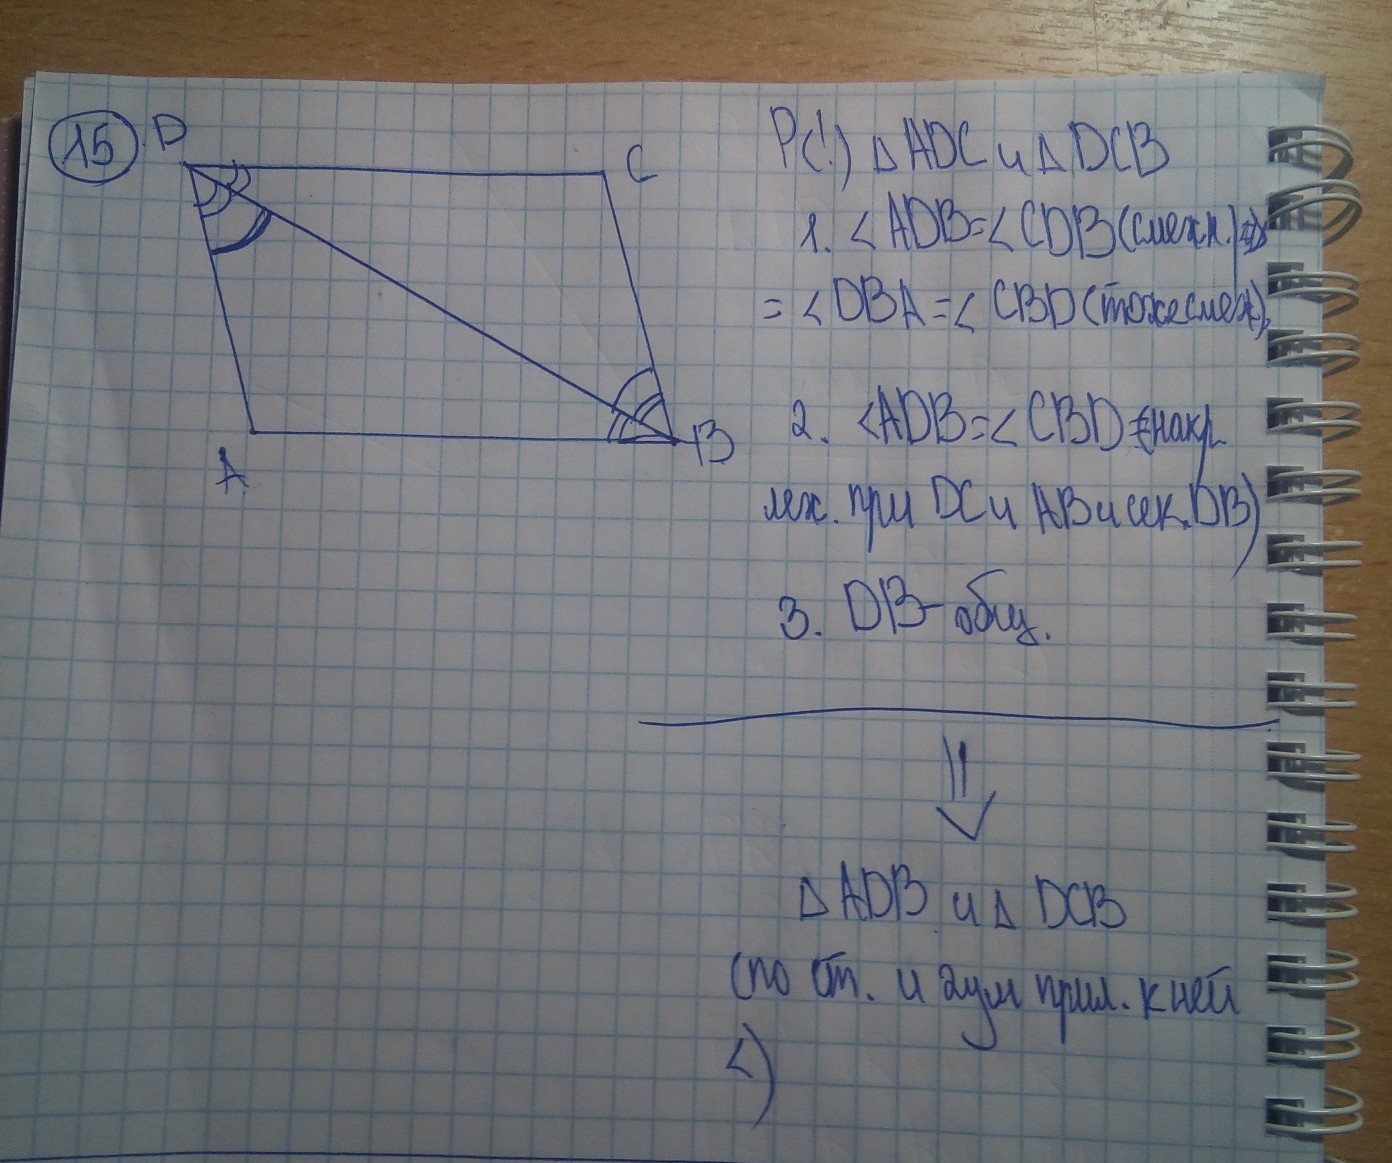 15
D
C
A
B
Р(!) △ ADC и △ DCB
1. ∠ ADB=∠ CDB (смежн.) ⇒
= ∠ DBA = ∠ CBD (тоже смеж),
2. ∠ADB=∠ CBD (накр.
леж. при DC и AB и сек. DB)
3. DB- общ.
⇓
△ ADB и △ DCB
(по ст. и 2ум прил. к ней
∠)